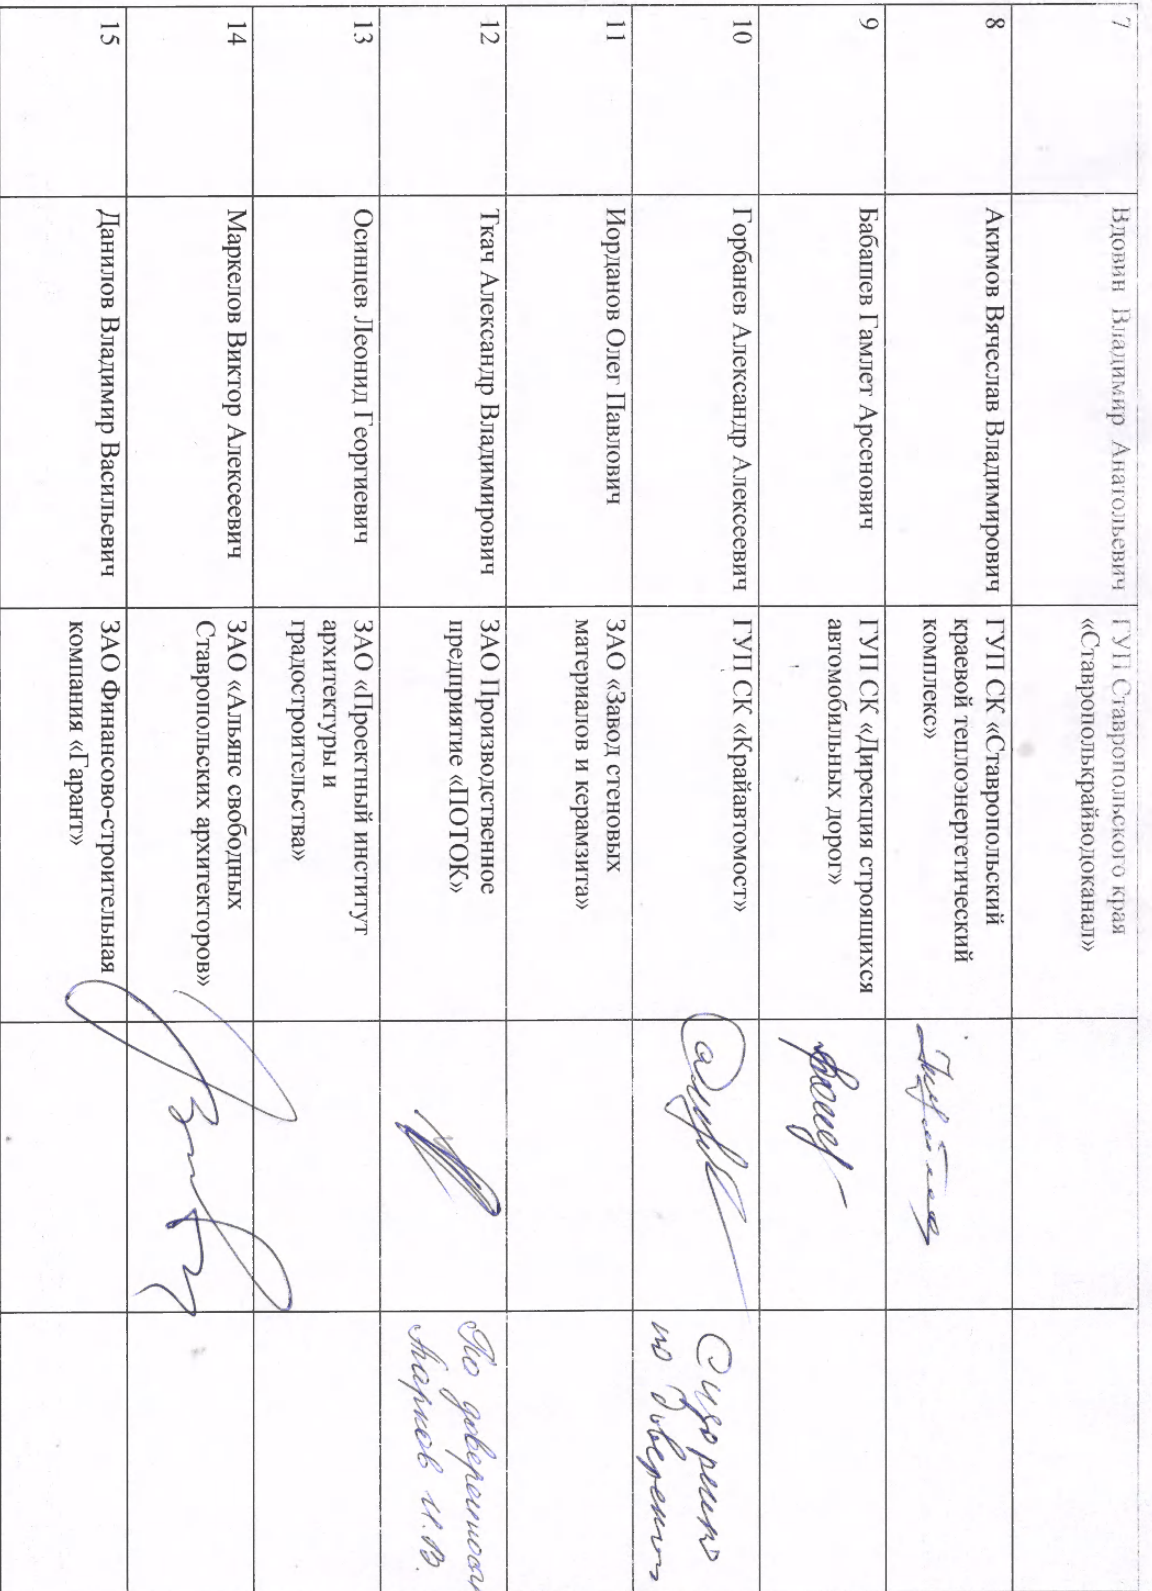 7
Вдовин Владимир Анатольевич
ГУП Ставропольского края
«Ставрополькрайводоканал»
8
Акимов Вячеслав Владимирович
ГУП СК «Ставропольский
краевой теплоэнергетический
комплекс»
9
Бабашев Гамлет Арсенович
ГУП СК «Дирекция строящихся
автомобильных дорог»
10
Горбанев Александр Алексеевич
ГУП СК «Крайавтомост»
по
11
Иорданов Олег Павлович
ЗАО «Завод стеновых
материалов и керамзита»
12
Ткач Александр Владимирович
ЗАО Производственное
предприятие «ПОТОК»
По
Марков И.В.
13
Осинцев Леонид Георгиевич
ЗАО «Проектный институт
архитектуры и
градостроительства»
14
Маркелов Виктор Алексеевич
ЗАО «Альянс свободных
Ставропольских архитекторов»
15
Данилов Владимир Васильевич
ЗАО Финансово-строительная
компания «Гарант»